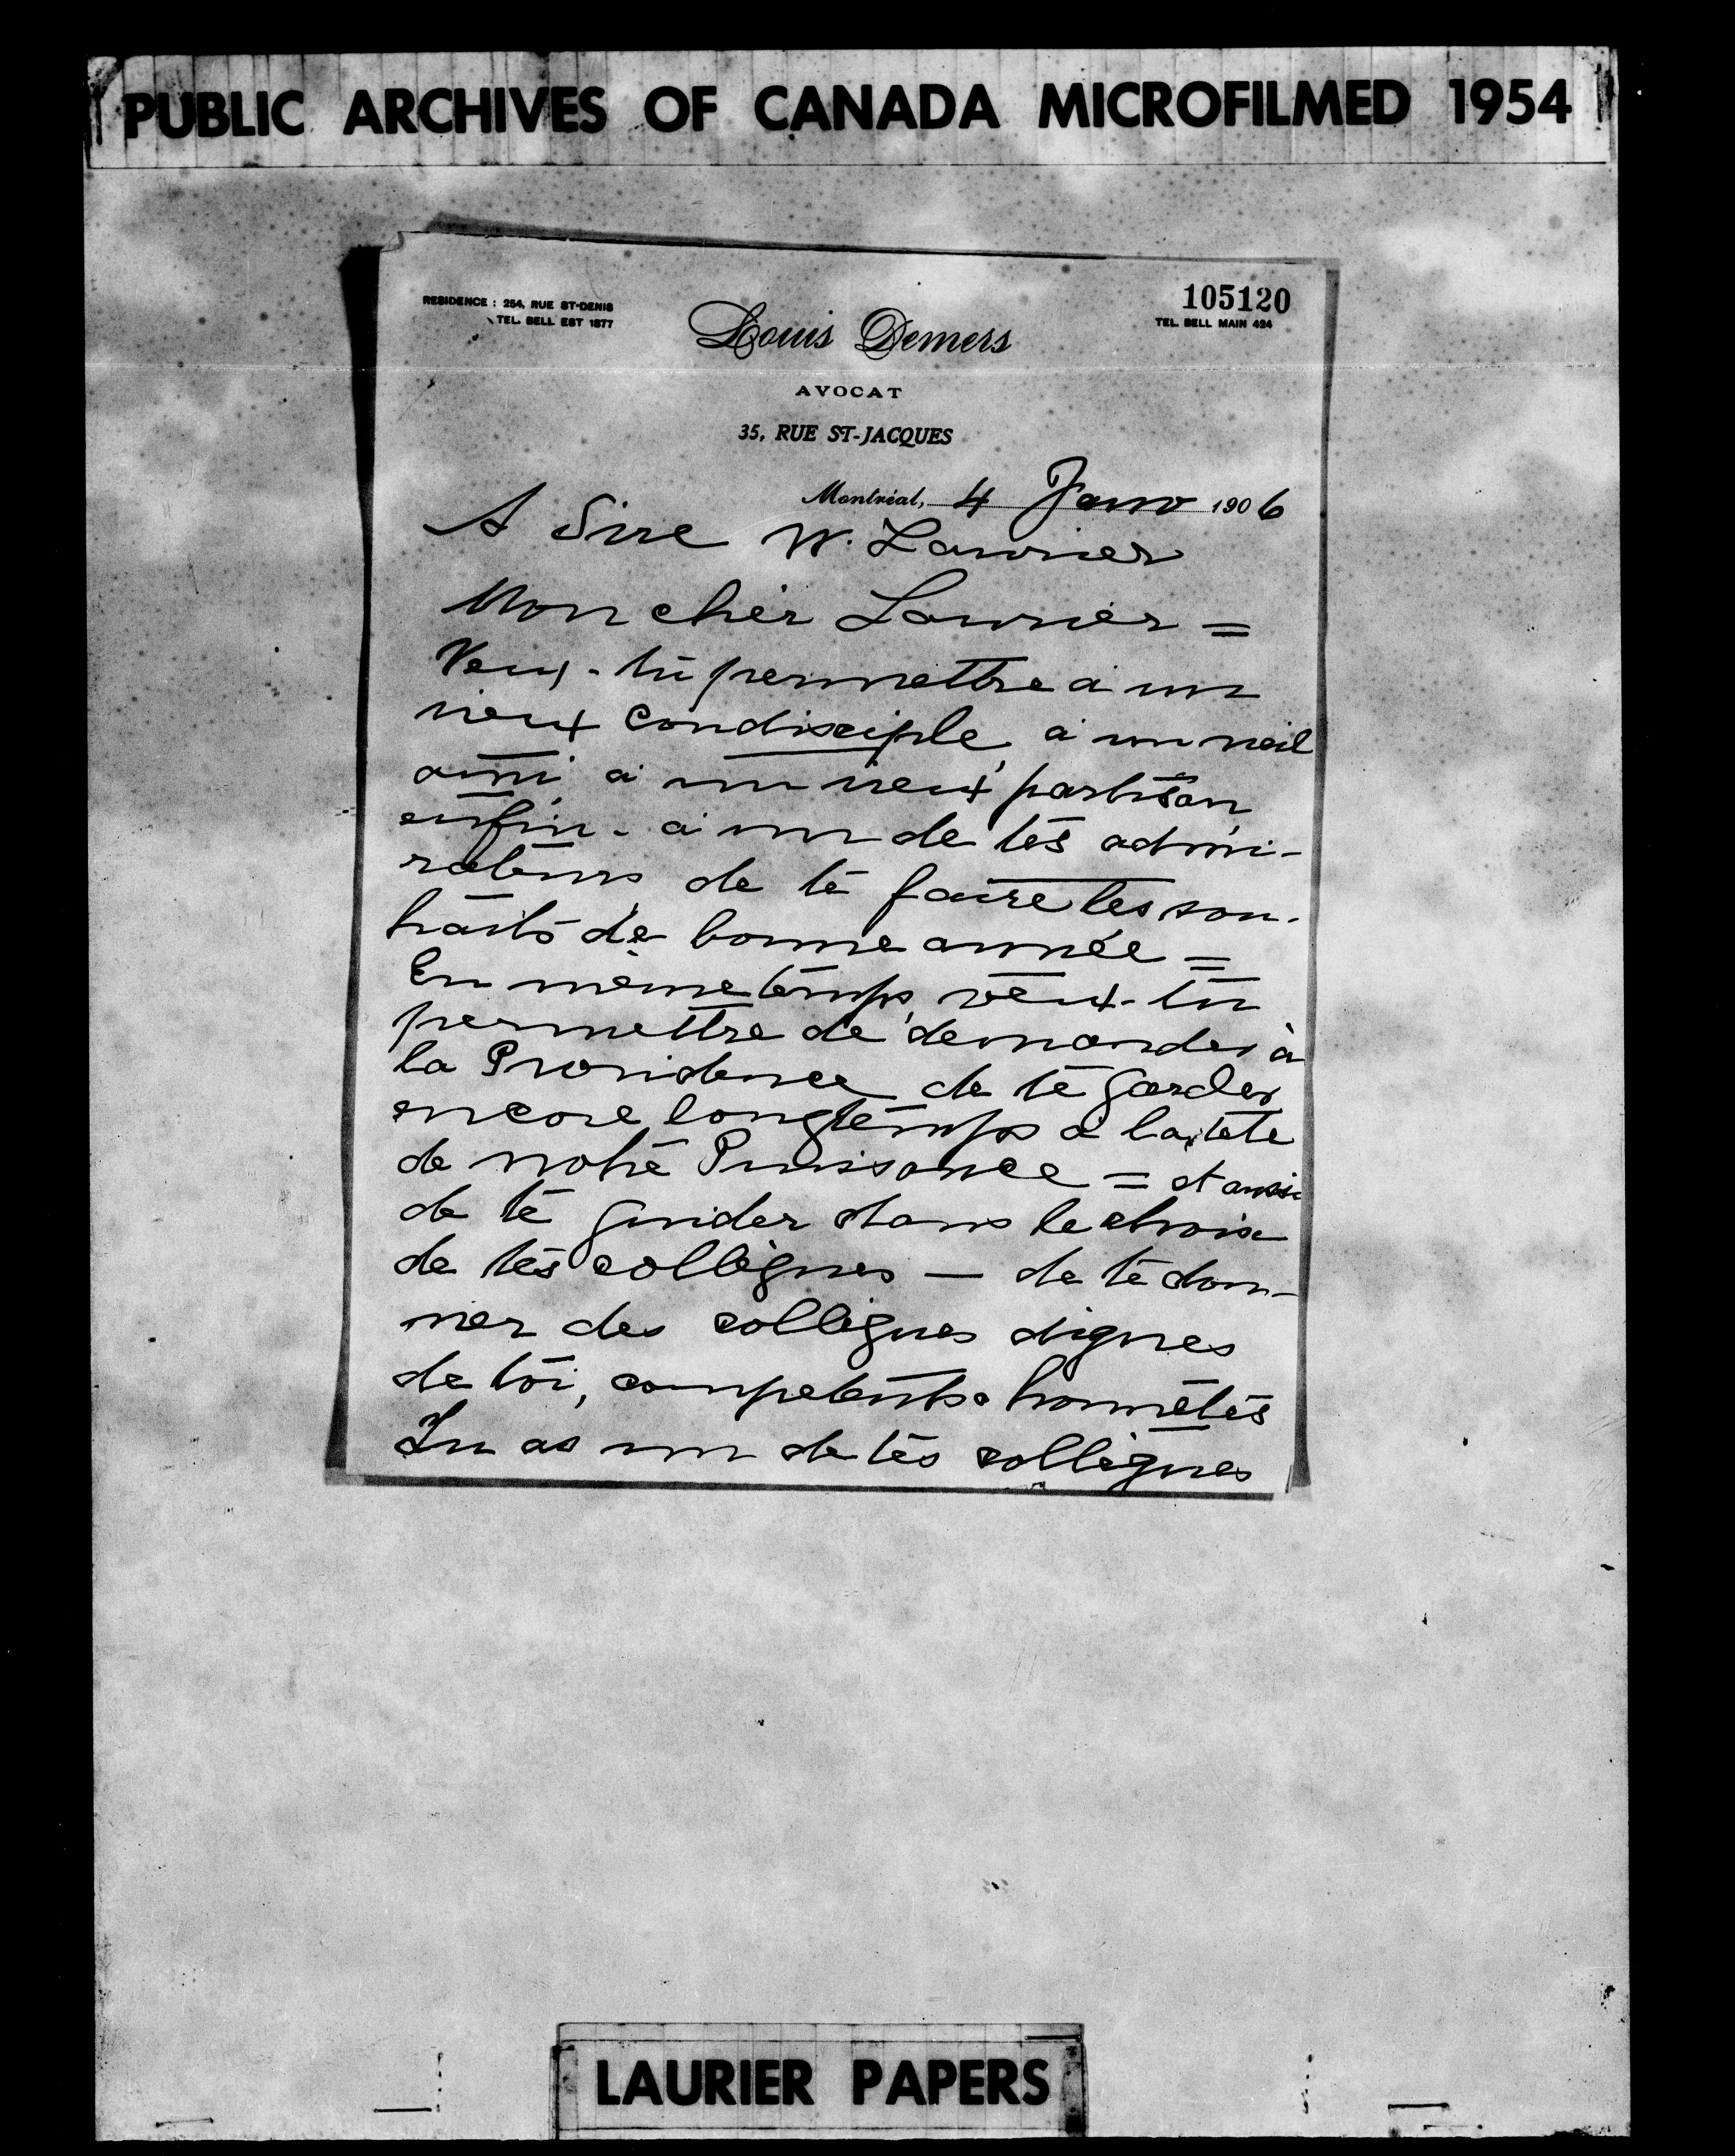 PUBLIC ARCHIVES OF CANADA MICROFILMED 1954
105120
RESIDENCE : 254, RUE ST-DENIS
TEL. BELL EST 1877
TEL. BELL MAIN 424
Louis Demers
AVOCAT
35, RUE ST-JACQUES
Montréal, 4 Janv 1906
A Sire W. Laurier
Mon cher Laurier =
Veux-tu permettre à un
vieux condisciple, à un vieil
ami à un vieux partisan,
enfin - à un de tes admi-
rateurs de te faire les sou-
haits de bonne année =
En même temps, veux-tu
permettre de demander à
la Providence de te garder
encore longtemps à la tête
de notre Puissance = et aussi
de te guider dans le choix
de tes collègues — de te don-
ner des collègues dignes
de toi, competents & honnêtes
Tu as un de tes collègues
LAURIER PAPERS